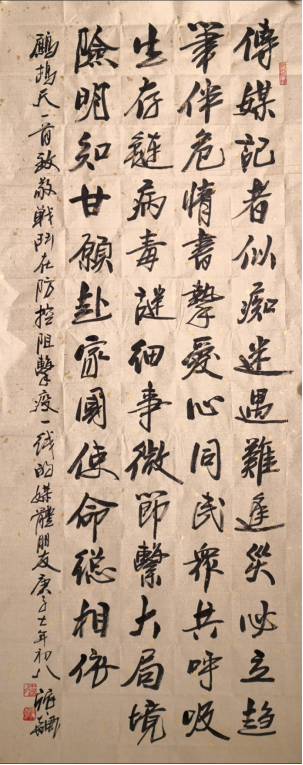 傳媒記者似痴迷遇難逢災必立趋
筆伴危情書摯愛心同民眾共呼吸
生存鏈病毒謎細事微節繫大局境
險明知甘願赴家國使命総相依
鷓鴣天一首致敬戰鬥在防控阻擊疫一线的媒體朋友庚子大年初八